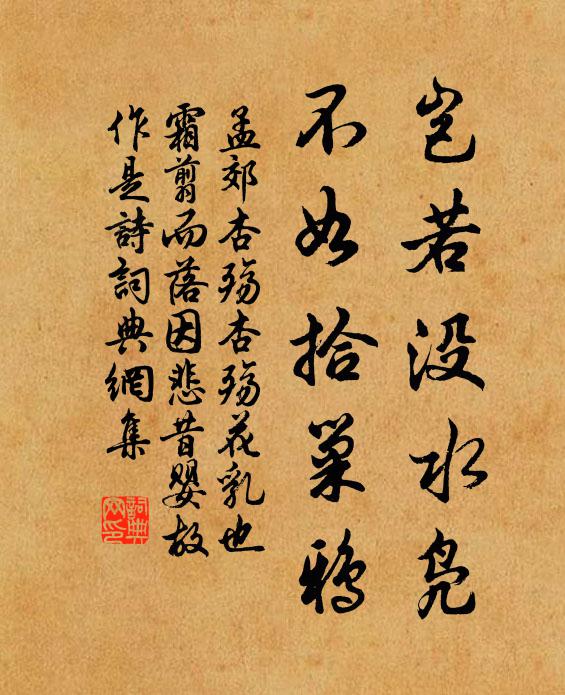 岂若没水凫
不如拾巢鸦
孟郊杏殇杏殇花乳也
霜翦而落因悲昔婴故
作是詩詞典網集
詞典
网印